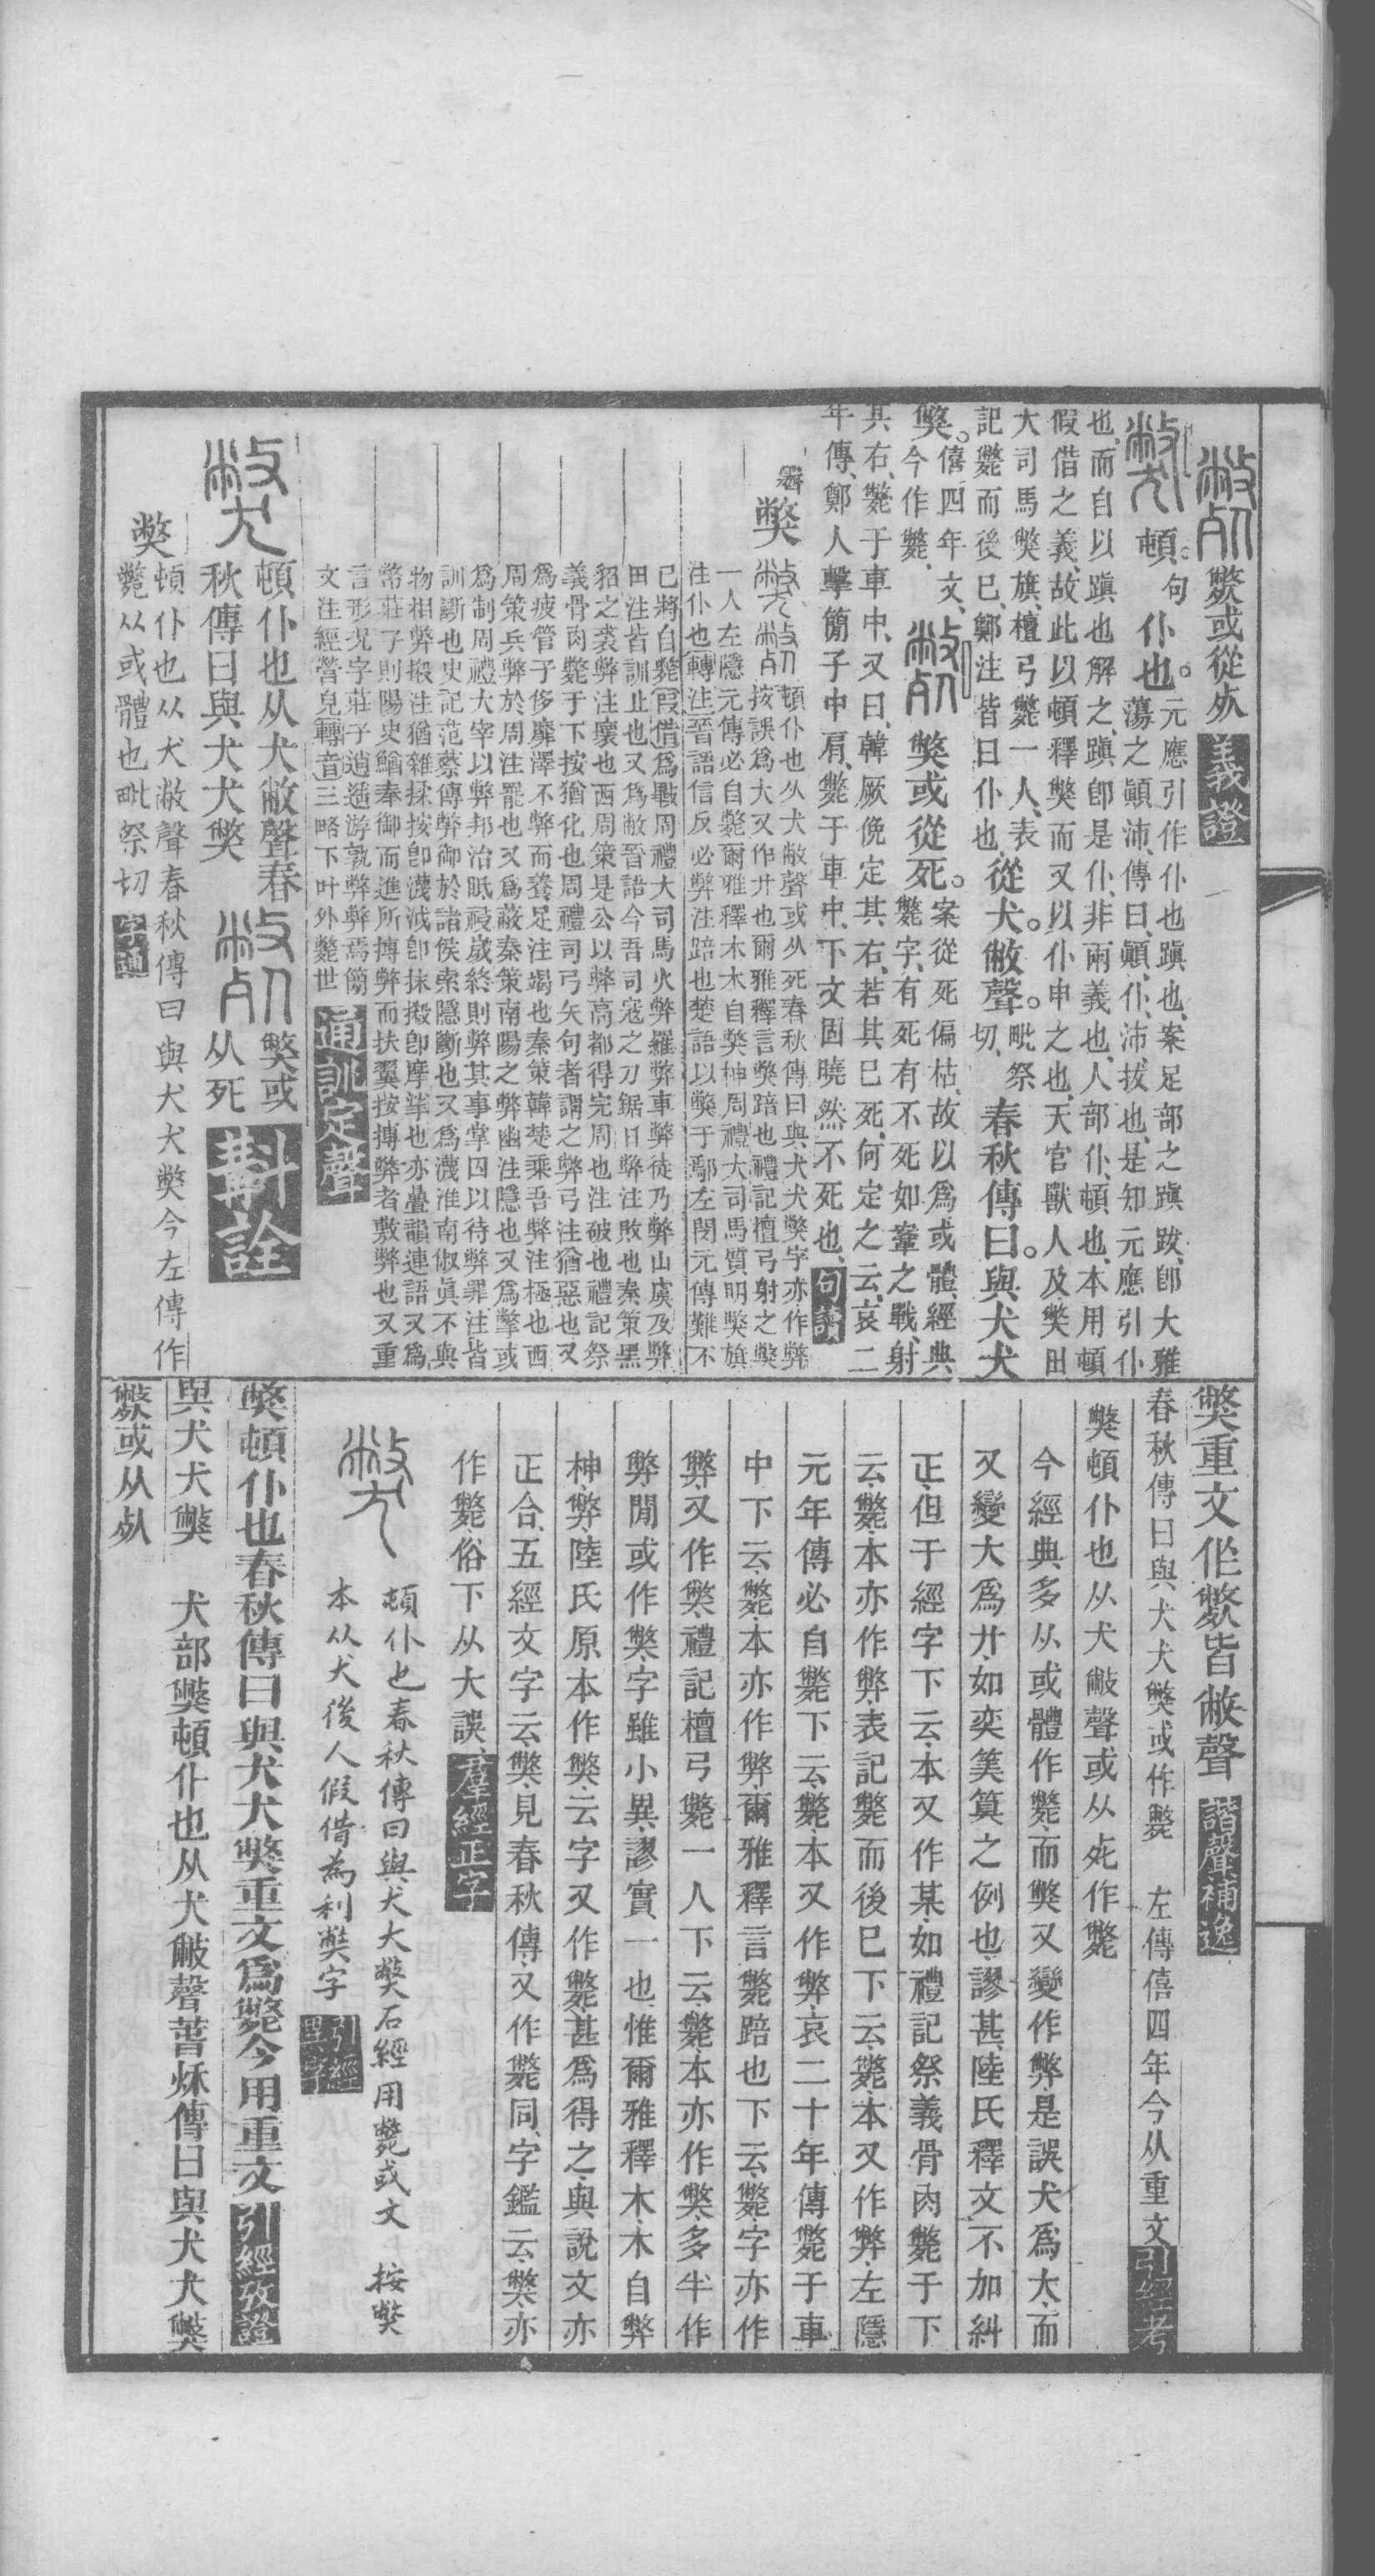 獘或從𣦸 義證
頓句仆也元應引作仆也蹎也案足部之蹎跋卽大雅
蕩之顚沛傳曰顚仆沛拔也是知元應引仆
也而自以蹎也解之蹎卽是仆非兩義也人部仆頓也本用頓
假借之義故此以頓釋獘而又以仆申之也天官獸人及獘田
大司馬獘旗檀弓斃一人表
記斃而後已鄭注皆曰仆也從犬敝聲毗祭切春秋傳曰與犬犬
獘僖四年文今作斃獘或從死案從死偏枯故以爲或體經典
斃字有死有不死如鞌之戰射
其右斃于車中又曰韓厥俛定其右若其已死何定之云哀二
年傳鄭人擊簡子中肩斃于車中下文固曉然不死也 句讀
獘 頓仆也从犬敝聲或从死春秋傳曰與犬犬獘字亦作弊
按誤爲大又作廾也爾雅釋言獘踣也禮記檀弓射之獘
一人左隱元傳必自斃爾雅釋木木自獘柛周禮大司馬質明獘旗
注仆也轉注晉語信反必弊注踣也楚語以獘于鄢左閔元傳難不
已將自斃叚借爲戰周禮大司馬火弊羅弊車弊徒乃弊山虞及弊
田注皆訓止也又爲敝晉語今吾司寇之刀鋸日弊注敗也秦策黑
貂之裘弊注壞也西周策是公以弊高都得完周也注破也禮記祭
義骨肉斃于下按猶化也周禮司弓矢句者謂之弊弓注猶惡也又
爲疲管子侈靡澤不弊而養足注竭也秦策韓楚乘吾弊注極也西
周策兵弊於周注罷也又爲蔽秦策南陽之弊幽注隱也又爲𢷋或
爲制周禮大宰以弊邦治眂祲歲終則弊其事掌囚以待弊罪注皆
訓斷也史記范蔡傳弊御於諸侯索隱斷也又爲㵼淮南俶眞不與
物相弊摋注猶雜揉按卽㵼泧卽抹摋卽摩挲也亦疊韻連語又爲
幣莊子則陽史鰌奉御而進所搏弊而扶翼按搏弊者敷弊也又重
言形況字莊子逍遙游孰弊弊焉簡
文注經營皃轉音三略下叶外斃世 通訓定聲
頓仆也从犬敝聲春
秋傳曰與犬犬獘 獘或
从死 斠詮
獘頓仆也从犬敝聲春秋傳曰與犬犬獘今左傳作
斃从或體也毗祭切 字通
獘重文作獘皆敝聲 諧聲補逸
春秋傳曰與犬犬獘或作斃 左傳僖四年今从重文 引經考
獘頓仆也从犬敝聲或从死作斃
今經典多从或體作斃而獘又變作弊是誤犬爲大而
又變大爲廾如奕筭算之例也謬甚陸氏釋文不加糾
正但于經字下云本又作某如禮記祭義骨肉斃于下
云斃本亦作弊表記斃而後已下云斃本又作弊左隱
元年傳必自斃下云斃本又作弊哀二十年傳斃于車
中下云斃本亦作弊爾雅釋言斃踣也下云斃字亦作
弊又作獘禮記檀弓斃一人下云斃本亦作獘多半作
弊閒或作獘字雖小異謬實一也惟爾雅釋木木自弊
柛弊陸氏原本作獘云字又作斃甚爲得之與說文亦
正合五經文字云獘見春秋傳又作斃同字鑑云獘亦
作斃俗下从大誤 羣經正字
頓仆也春秋傳曰與犬犬獘石經用斃或文 按獘
本从犬後人假借為利獘字 引經異字
獘頓仆也春秋傳曰與犬犬獘重文爲斃今用重文 引經攷證
與犬犬獘 犬部獘頓仆也从犬敝聲萅秌傳曰與犬犬獘
獘或从𣦸